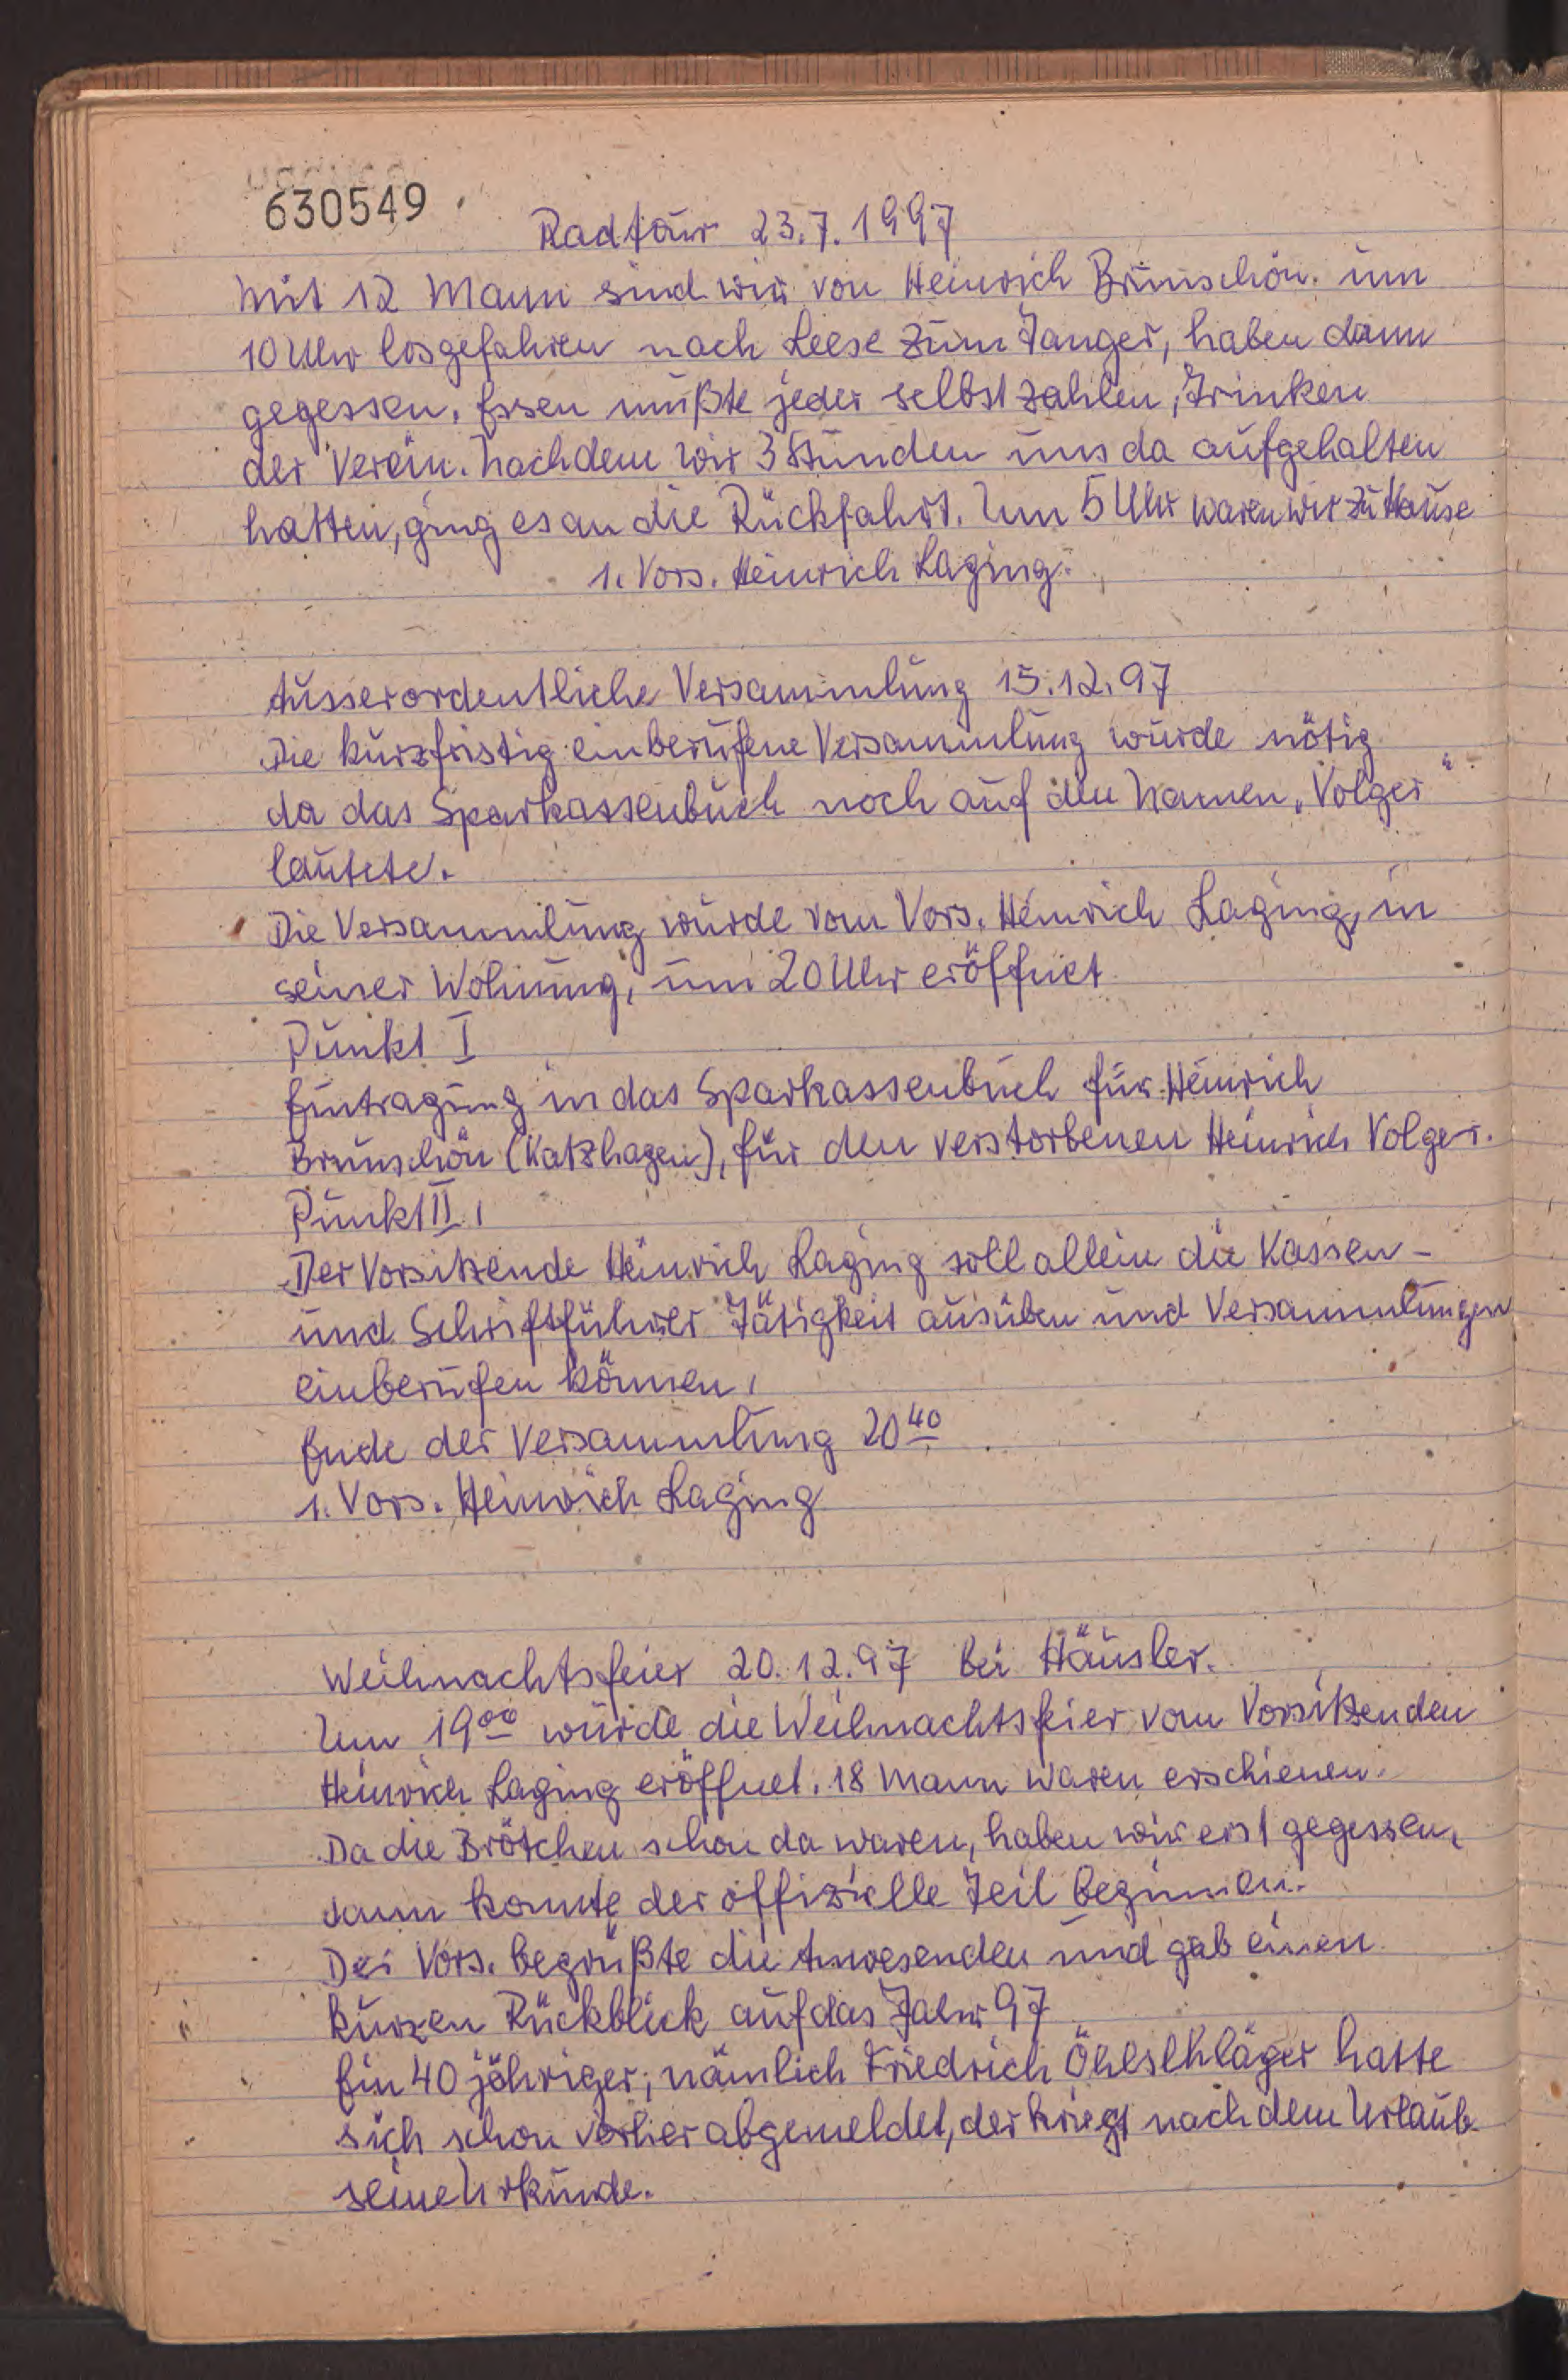 630549
Radtour 23.7.1997
Mit 12 Mann sind wir von Heinrich Brunschön um
10 Uhr losgefahren nach Leese zum Tanger, haben dann
gegessen. Essen mußte jeder selbst zahlen, Trinken
der Verein. Nachdem wir 3 Stunden uns da aufgehalten
hatten, ging es an die Rückfahrt. Um 5 Uhr waren wir zu Hause
1. Vors. Heinrich Laging.
Ausserordentliche Versammlung 15.12.97
Die kurzfristig einberufene Versammlung wurde nötig
da das Sparkassenbuch noch auf den Namen „Volger“
lautete.
Die Versammlung wurde vom Vors. Heinrich Laging, in
seiner Wohnung, um 20 Uhr eröffnet
Punkt I
Eintragung in das Sparkassenbuch für Heinrich
Brunschön (Katzhagen), für den verstorbenen Heinrich Volger.
Punkt II.
Der Vorsitzende Heinrich Laging soll allein die Kassen-
und Schriftführer Tätigkeit ausüben und Versammlungen
einberufen können.
Ende der Versammlung 20 40
1. Vors. Heinrich Laging
Weihnachtsfeier 20.12.97 bei Häusler.
Um 19 00 wurde die Weihnachtsfeier vom Vorsitzenden
Heinrich Laging eröffnet. 18 Mann waren erschienen.
Da die Brötchen schon da waren, haben wir erst gegessen,
dann konnte der offizielle Teil beginnen.
Der Vors. begrüßte die Anwesenden und gab einen
kurzen Rückblick auf das Jahr 97
Ein 40 jähriger, nämlich Friedrich Öhlschläger hatte
sich schon vorher abgemeldet, der kriegt nach dem Urlaub
seine Urkunde.